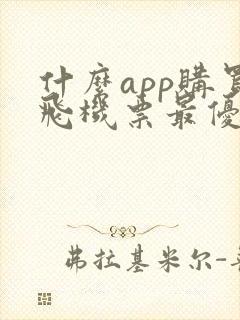 什麼app購買
飛機票最優
弗拉基米尔-